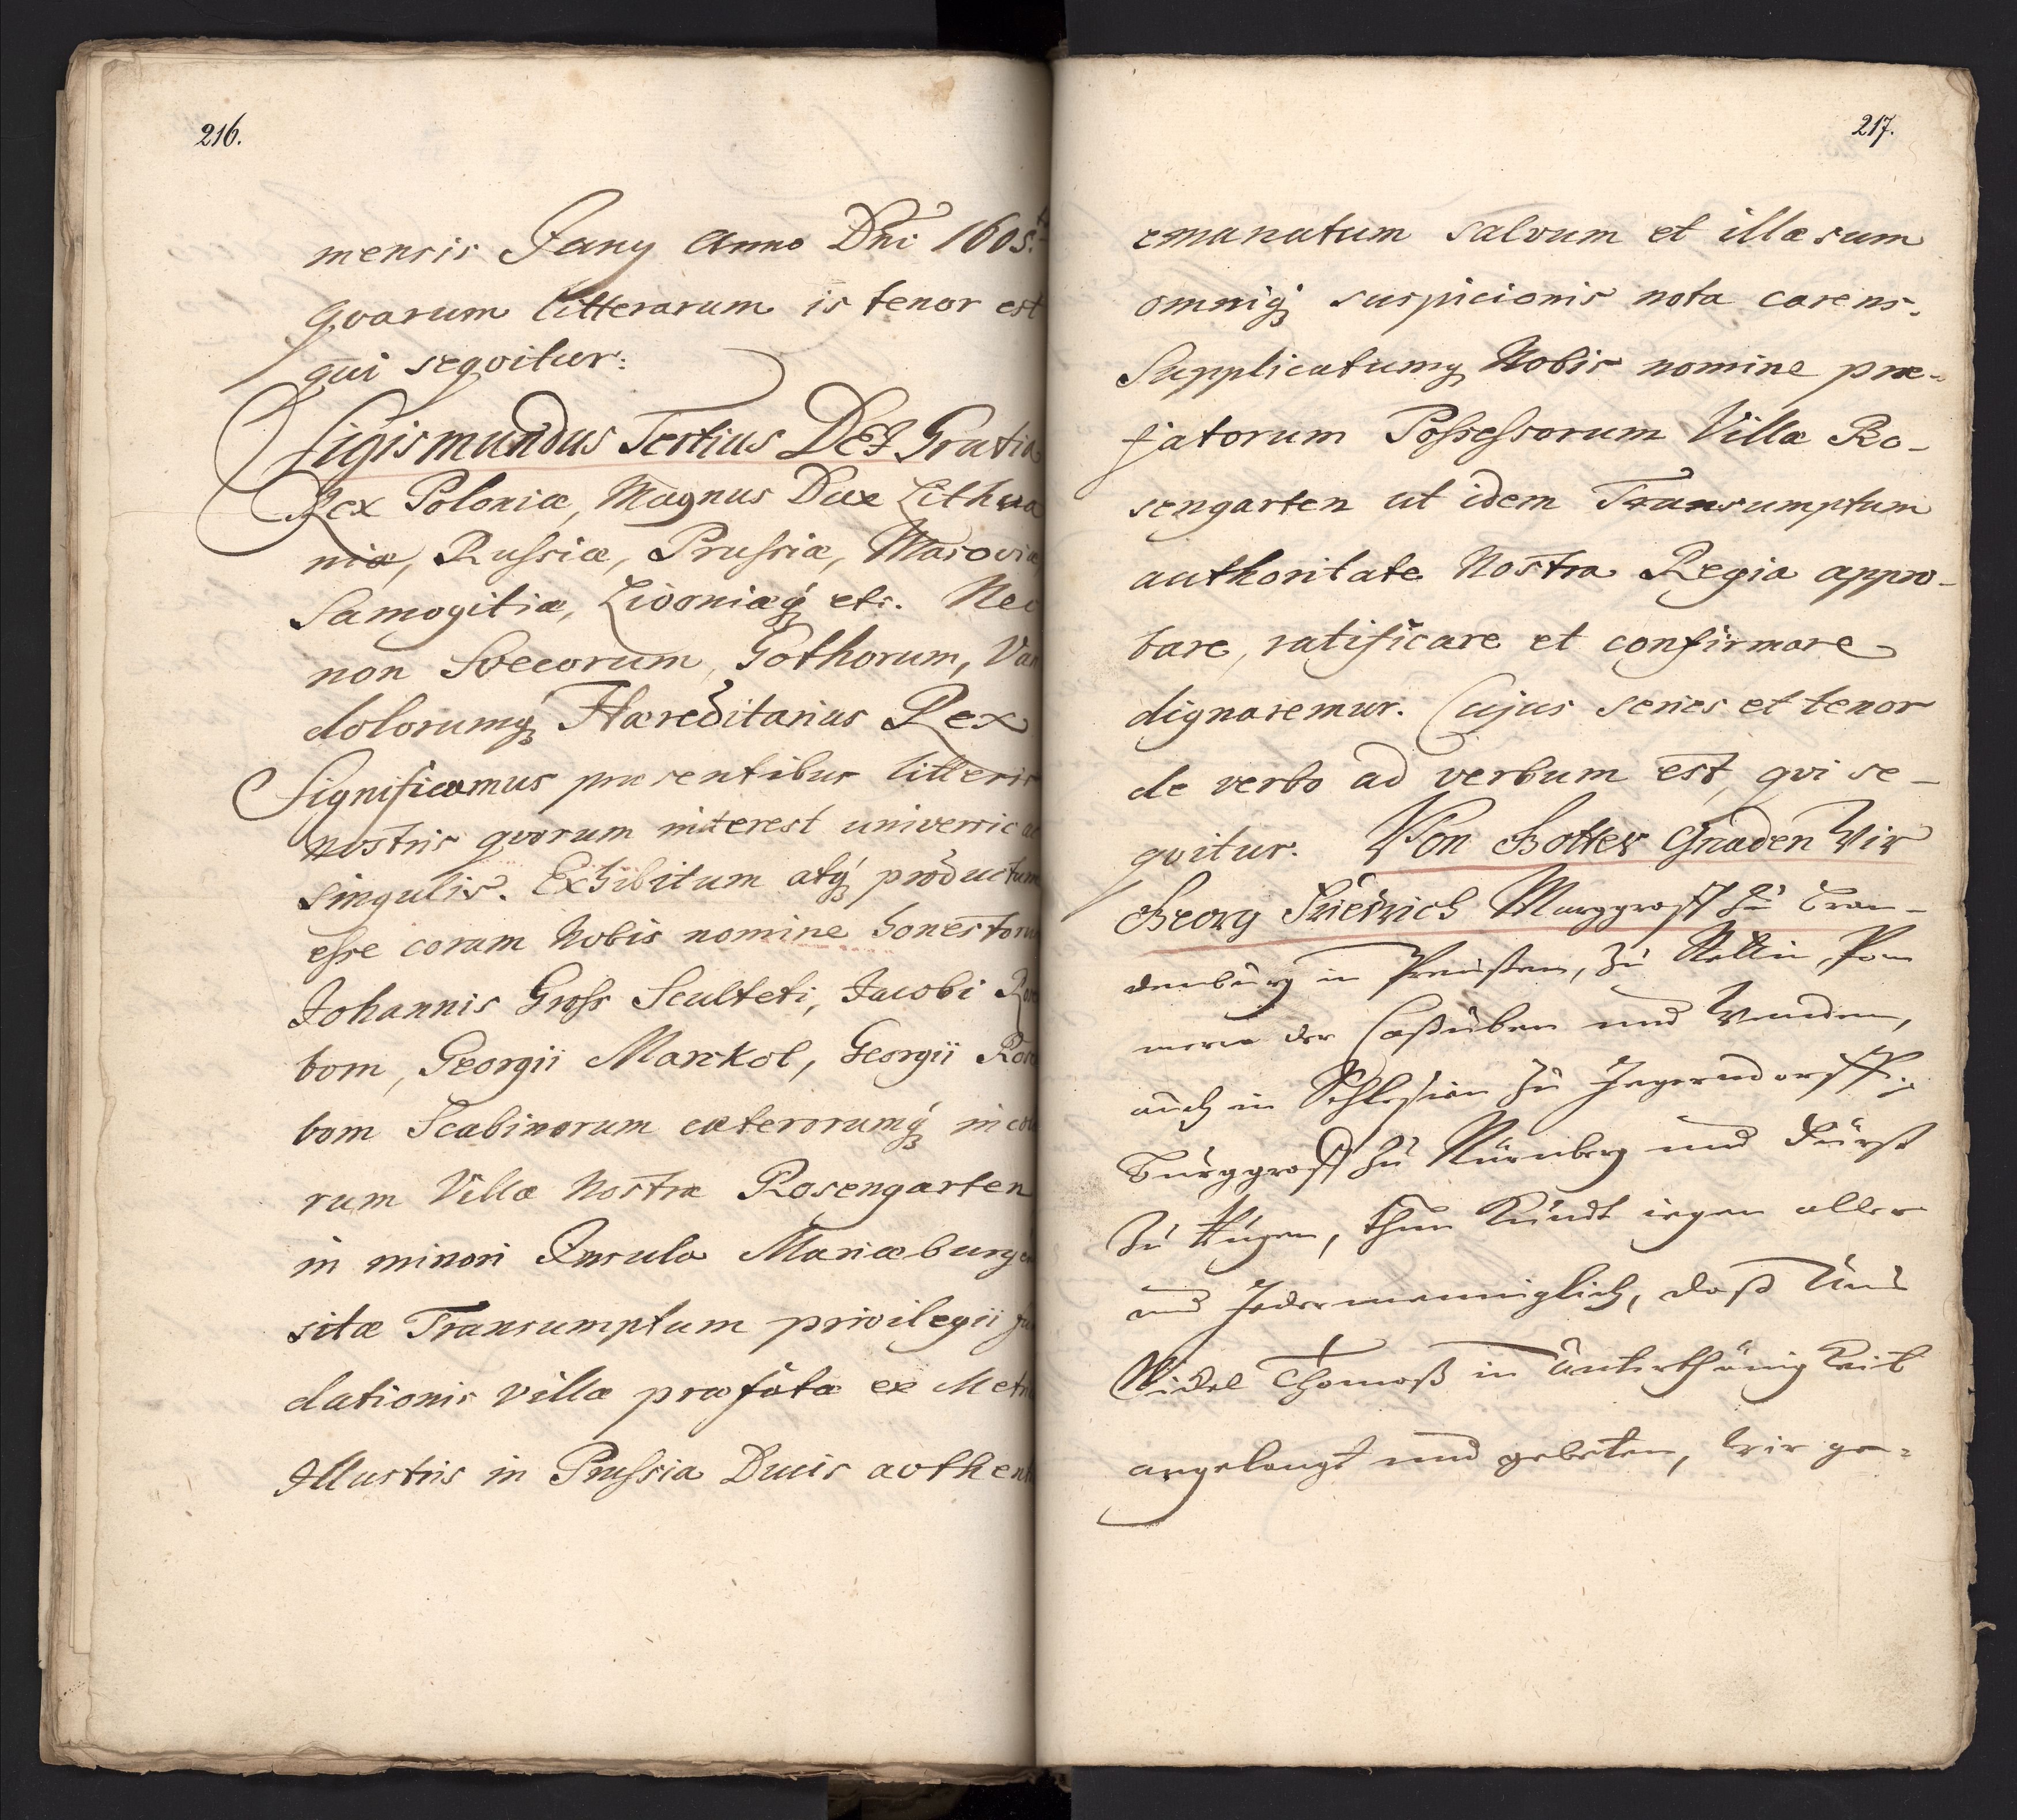 216.
mensis Jany anno Dni 1605.
qvarum litterarum is tenor est
qui seqvitur:
Sigismundus Tertius DEI Gratia
Rex Poloniæ, Magnus Dux Lithua
niæ, Rußiæ, Prußiæ, Masoviæ
Samogitiæ, Livoniæq; etc. Nec
non Svecorum, Gothorum, Van
dolorumq; Hæreditarius Rex
Significamus præsentibus litteris
Nostris qvorum interest universis ac
singulis. Exhibitum atq; productum
eße coram Nobis nomine honestoru
Johannis Groß Sculteti, Jacobi
bom, Georgii Markol, Georgii
bom Scabinorum cæterorumq; incol
rum Villæ Nostræ Rosengarten
in minori Insula Mariæburgen
sitæ Transumptum privilegii fun
dationis villæ præfatæ ex Metri
Illustris in Prußia Ducis authent
217.
emanatum salvum et illæsum
omniq; suspicionis nota carens.
Supplicatumq; Nobis nomine præ-
fatorum Poßeßorum Villæ Ro-
sengarten ut idem Transumptum
authoritate Nostra Regia appro-
bare, ratificare et confirmare
dignaremur. Cujus series et tenor
de verbo ad verbum est, qvi se-
qvitur. Von Gottes Gnaden Wir
Georg Friedrich Marggraff zu Bran-
denburg in Preußen, zu Stettin, Pom
mern der Caßuben und Wenden,
auch in Schlesien zu Jegerndorff :
Burggraff zu Nürnberg und Fürst
zu Rügen, thun Kundt iegen allen
und Jedermänniglich, daß Uns
Nickel Thomaß in Unterthänigkeit
angelangt und gebeten, wir ge-